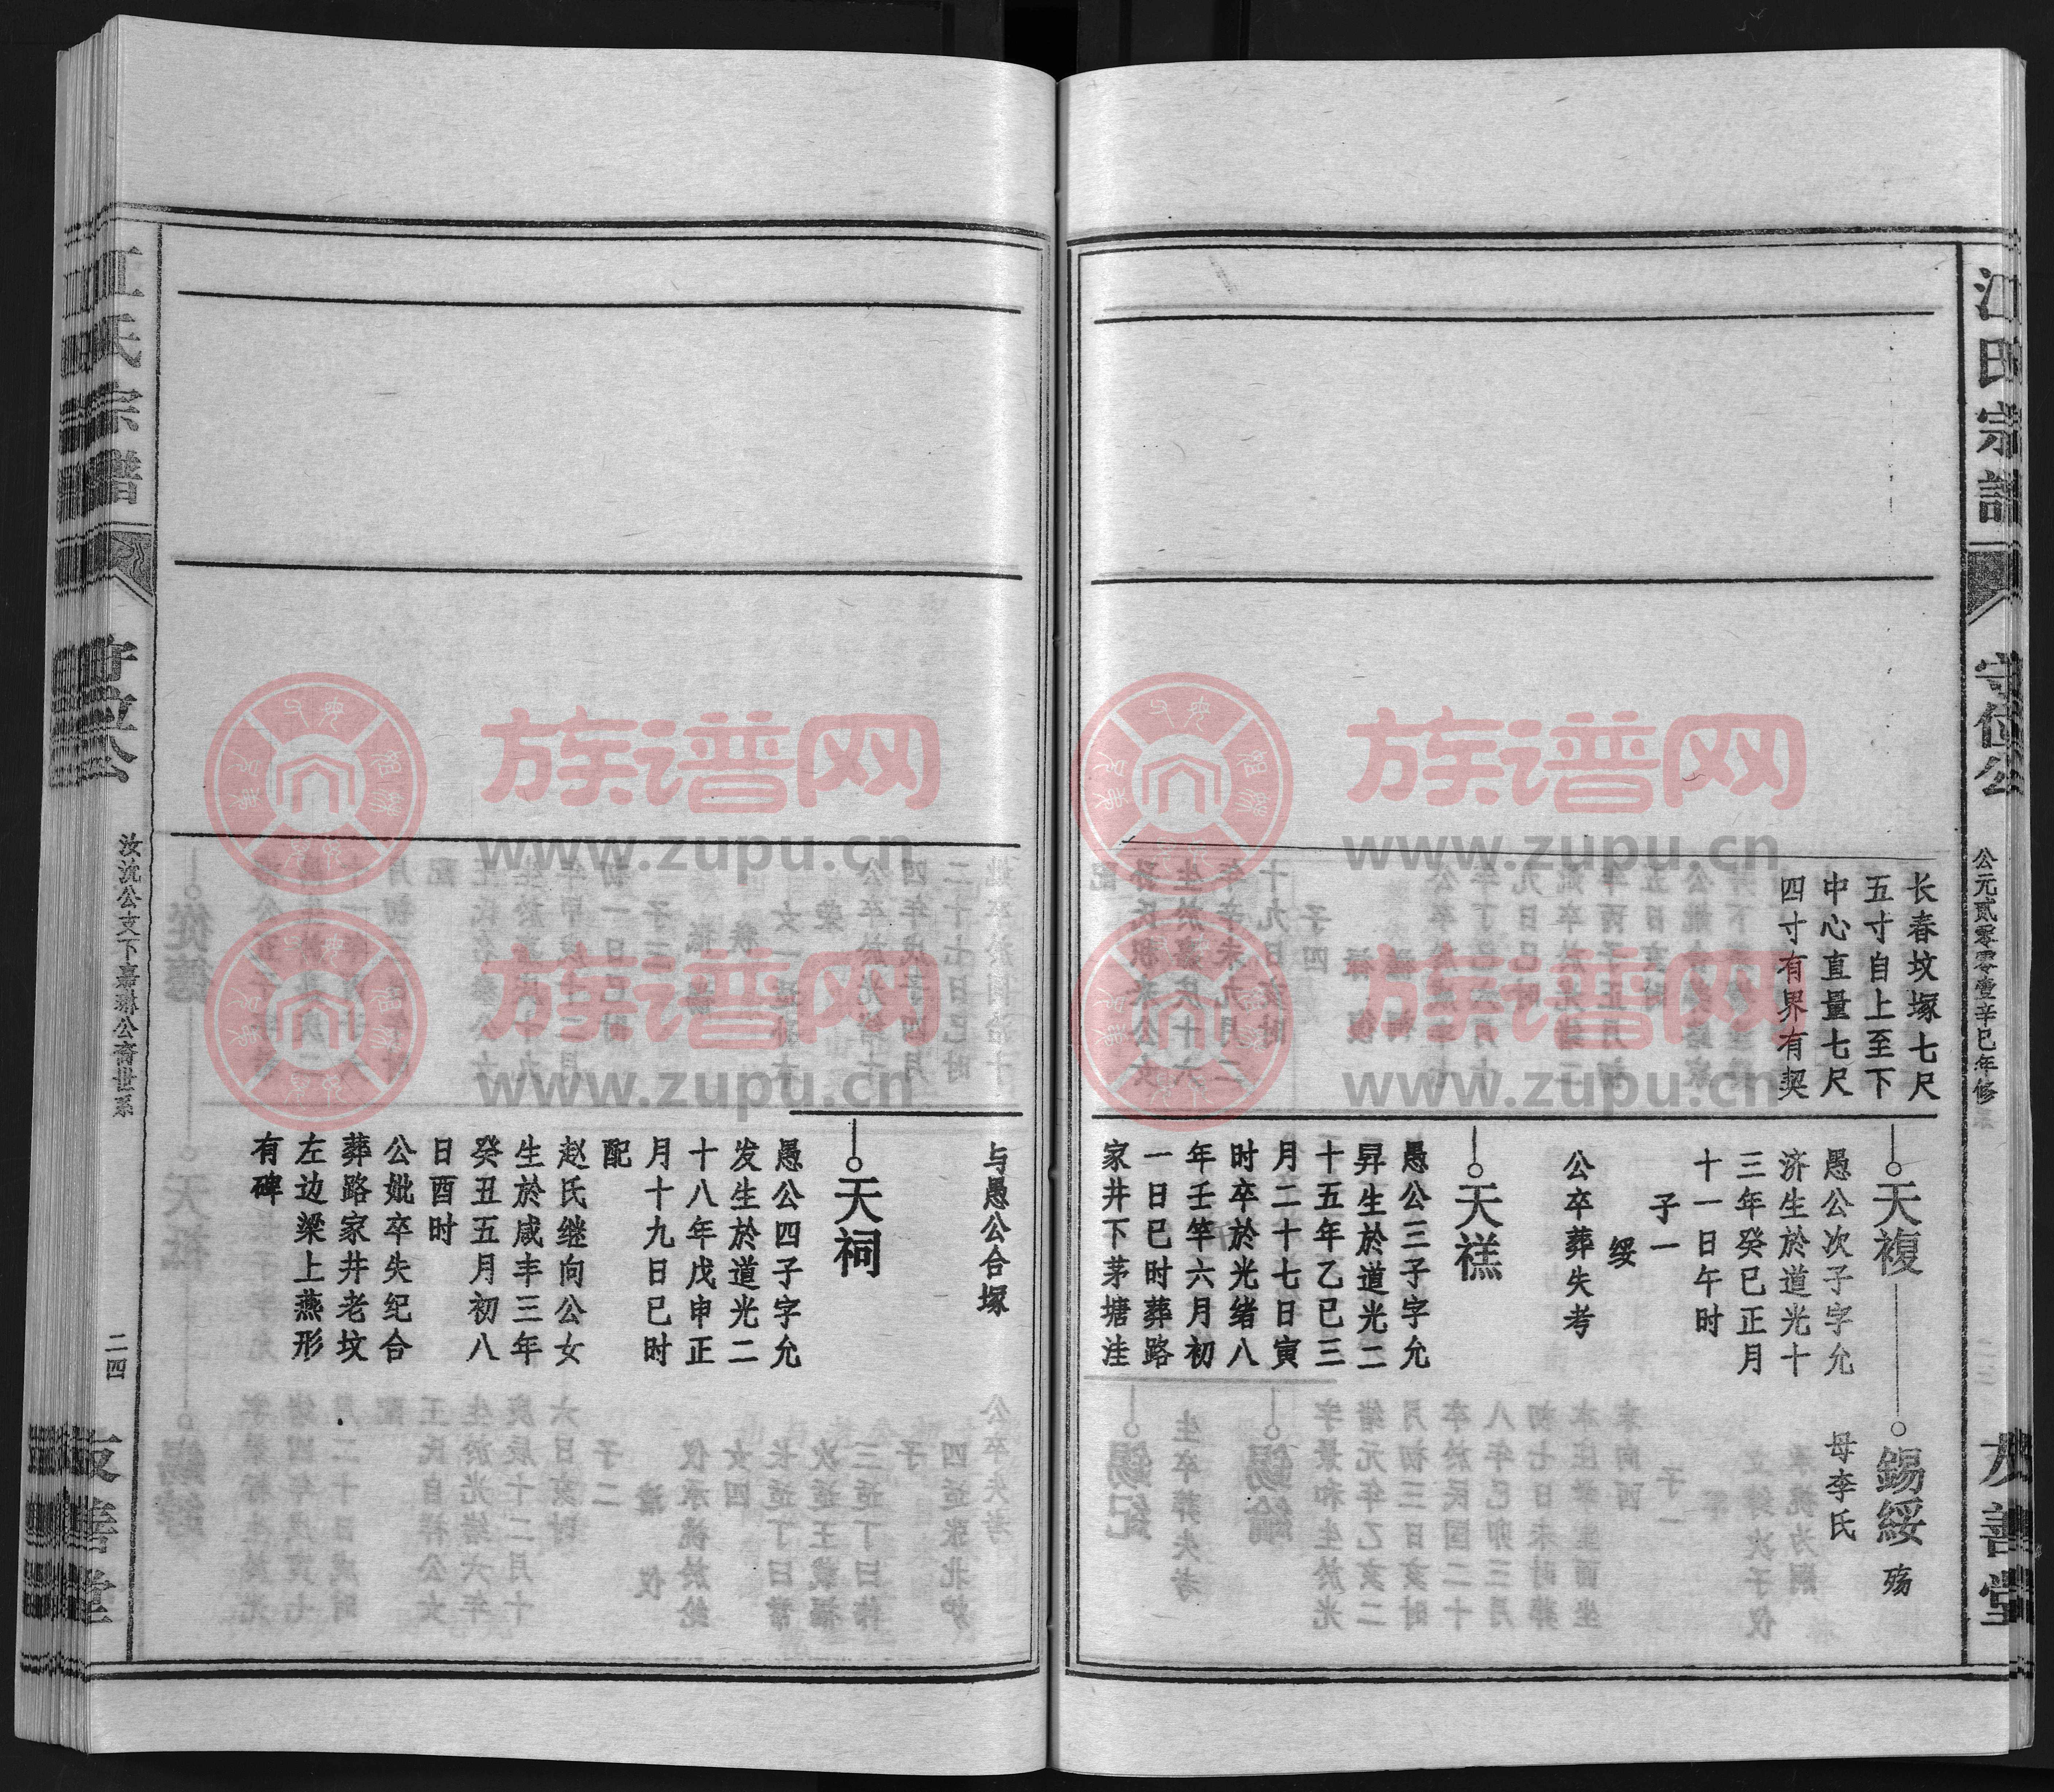 江氏宗譜
守位公
公元贰零零壹辛巳年修
友善堂
长春坟塚七尺
五寸自上至下
中心直量七尺
四寸有界有契
天複
愚公次子字允
济生於道光十
三年癸巳正月
十一日午时
子一
绥
公卒葬失考
錫綏 殇
母李氏
天禚
愚公三子字允
昇生於道光二
十五年乙巳三
月二十七日寅
时卒於光绪八
年壬竿六月初
一日巳时葬路
家井下茅塘洼
与愚公合塚
天祠
愚公四子字允
发生於道光二
十八年戊申正
月十九日巳时
配
赵氏继向公女
生於咸丰三年
癸丑五月初八
日酉时
公妣卒失纪合
葬路家井老坟
左边梁上燕形
有碑
江氏宗譜
守位公
汝沈公支下嘉琳公裔世系
二四
友善堂
族谱网
www.zupu.cn
族谱网
www.zupu.cn
族谱网
www.zupu.cn
族谱网
www.zupu.cn